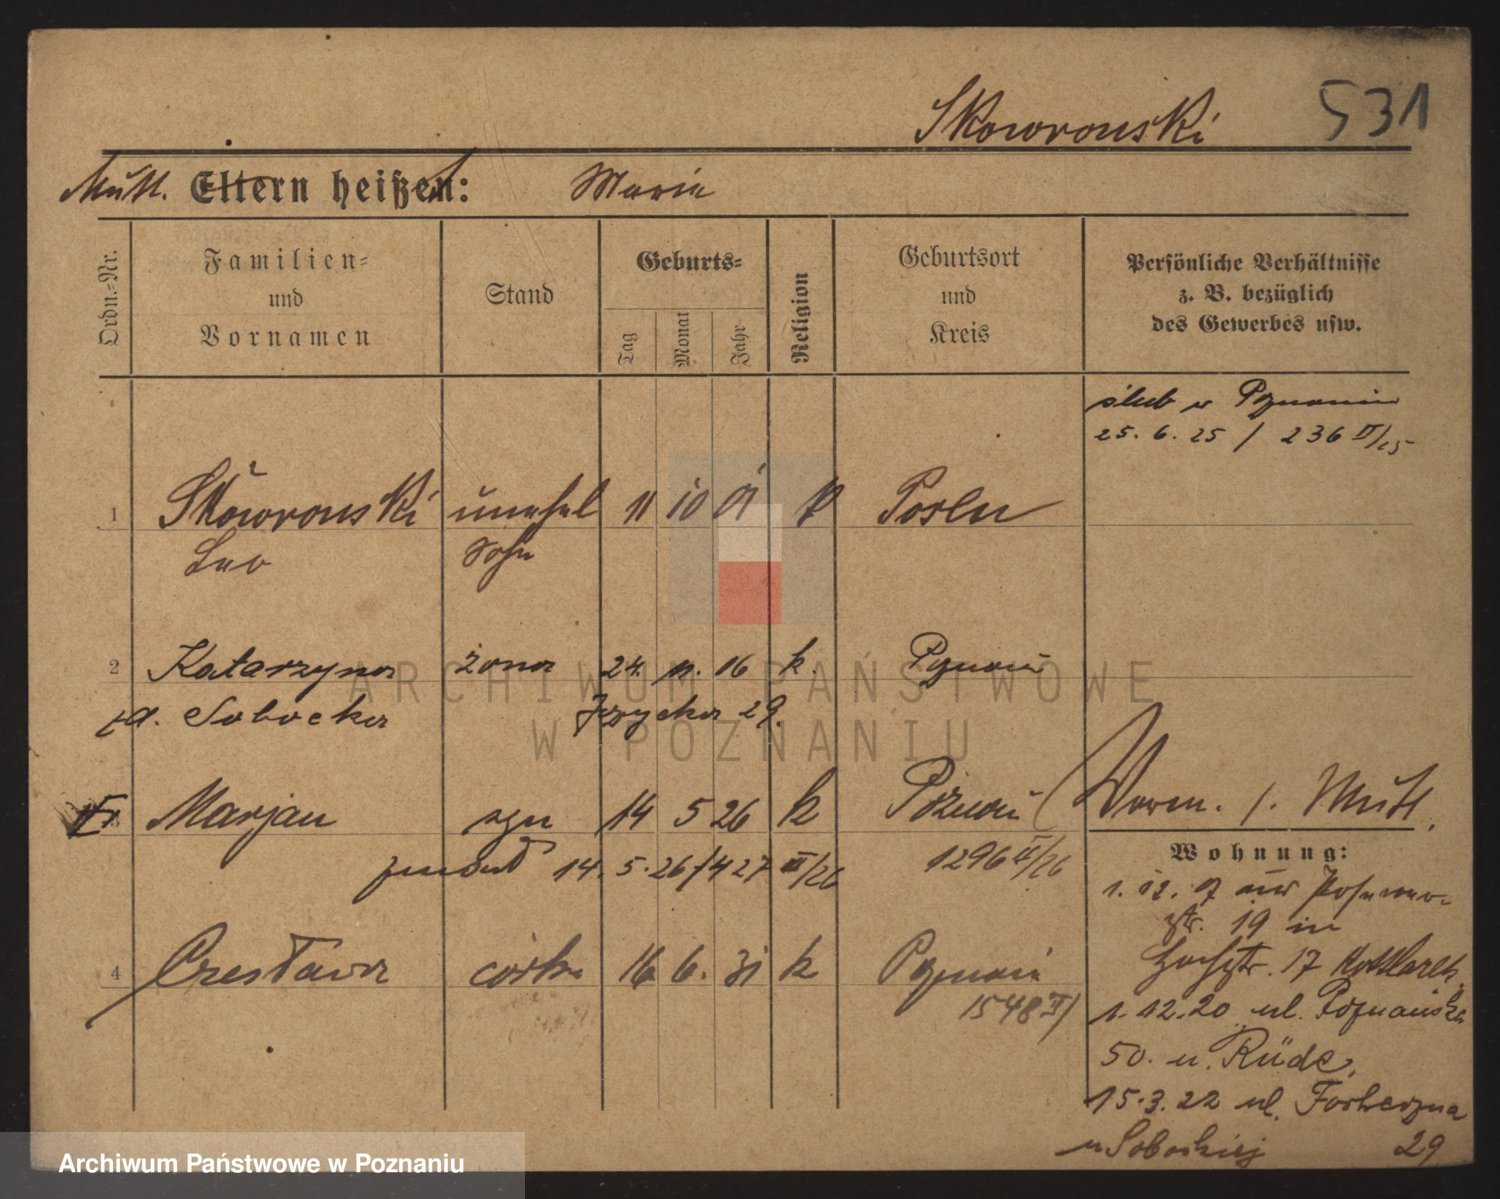 Skowronski 531
Mutt. Eltern heißen: Maria
Ordn.-Nr.
Familien-
und
Vornamen
Stand
Geburts-
Tag
Monat
Jahr
Religion
Geburtsort
und
Kreis
Persönliche Verhältnisse
z. B. bezüglich
des Gewerbes usw.
ślub w Poznaniu
25. 6. 25 / 236 II/25
1 Skowronski unehel 11 10 01 k Posen
Leo Sohn
2 Katarzyna żona 24. 11. 16 k. Poznań
z d. Sobocka 29.
3 Marjan syn 14 5 26 k Poznań
Vorm. s. Mutt.
14. 5. 26/427 II/26 1296 II/26
Wohnung:
1. 12. 07
str. 19 in
4 Czesława córka 16 6. 31 k Poznań
17
1548 II/
1. 12. 20 ul. Poznańska
50. u. Rüde,
15. 3. 22 ul. Forteczna
u Sobockiej 29
ARCHIWUM PAŃSTWOWE
W POZNANIU
Archiwum Państwowe w Poznaniu